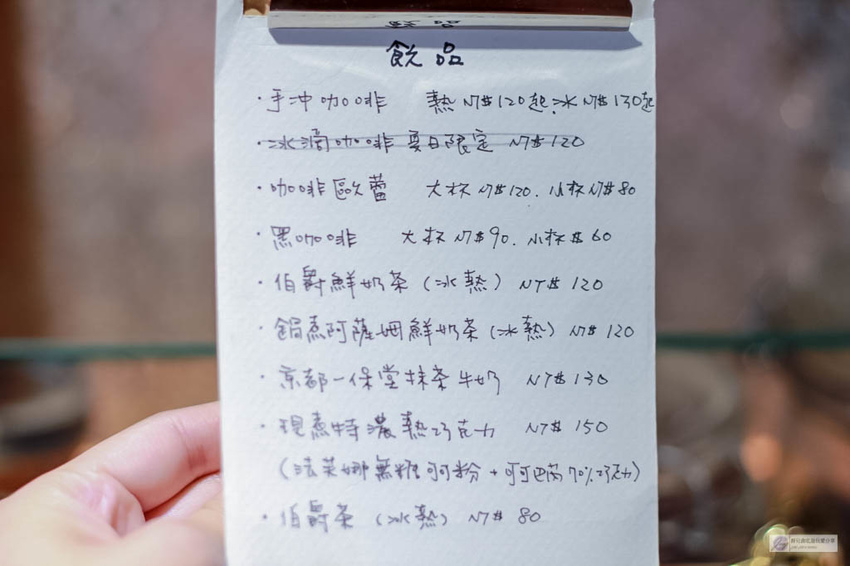 飲品
・手沖咖啡 熱 NT$120起.冰 NT$130起
・冰滴咖啡 夏日限定 NT$120
・咖啡歐蕾 大杯 NT$120. 小杯 NT$80
・黑咖啡 大杯 NT$90. 小杯$60
・伯爵鮮奶茶(冰熱) NT$120
・鍋煮阿薩姆鮮奶茶(冰熱) NT$120
・京都一保堂抹茶牛奶 NT$130
・現煮特濃熱巧克力 NT$150
(法芙娜無糖可可粉+可可巴芮70%巧克力)
・伯爵茶 (冰熱) NT$80